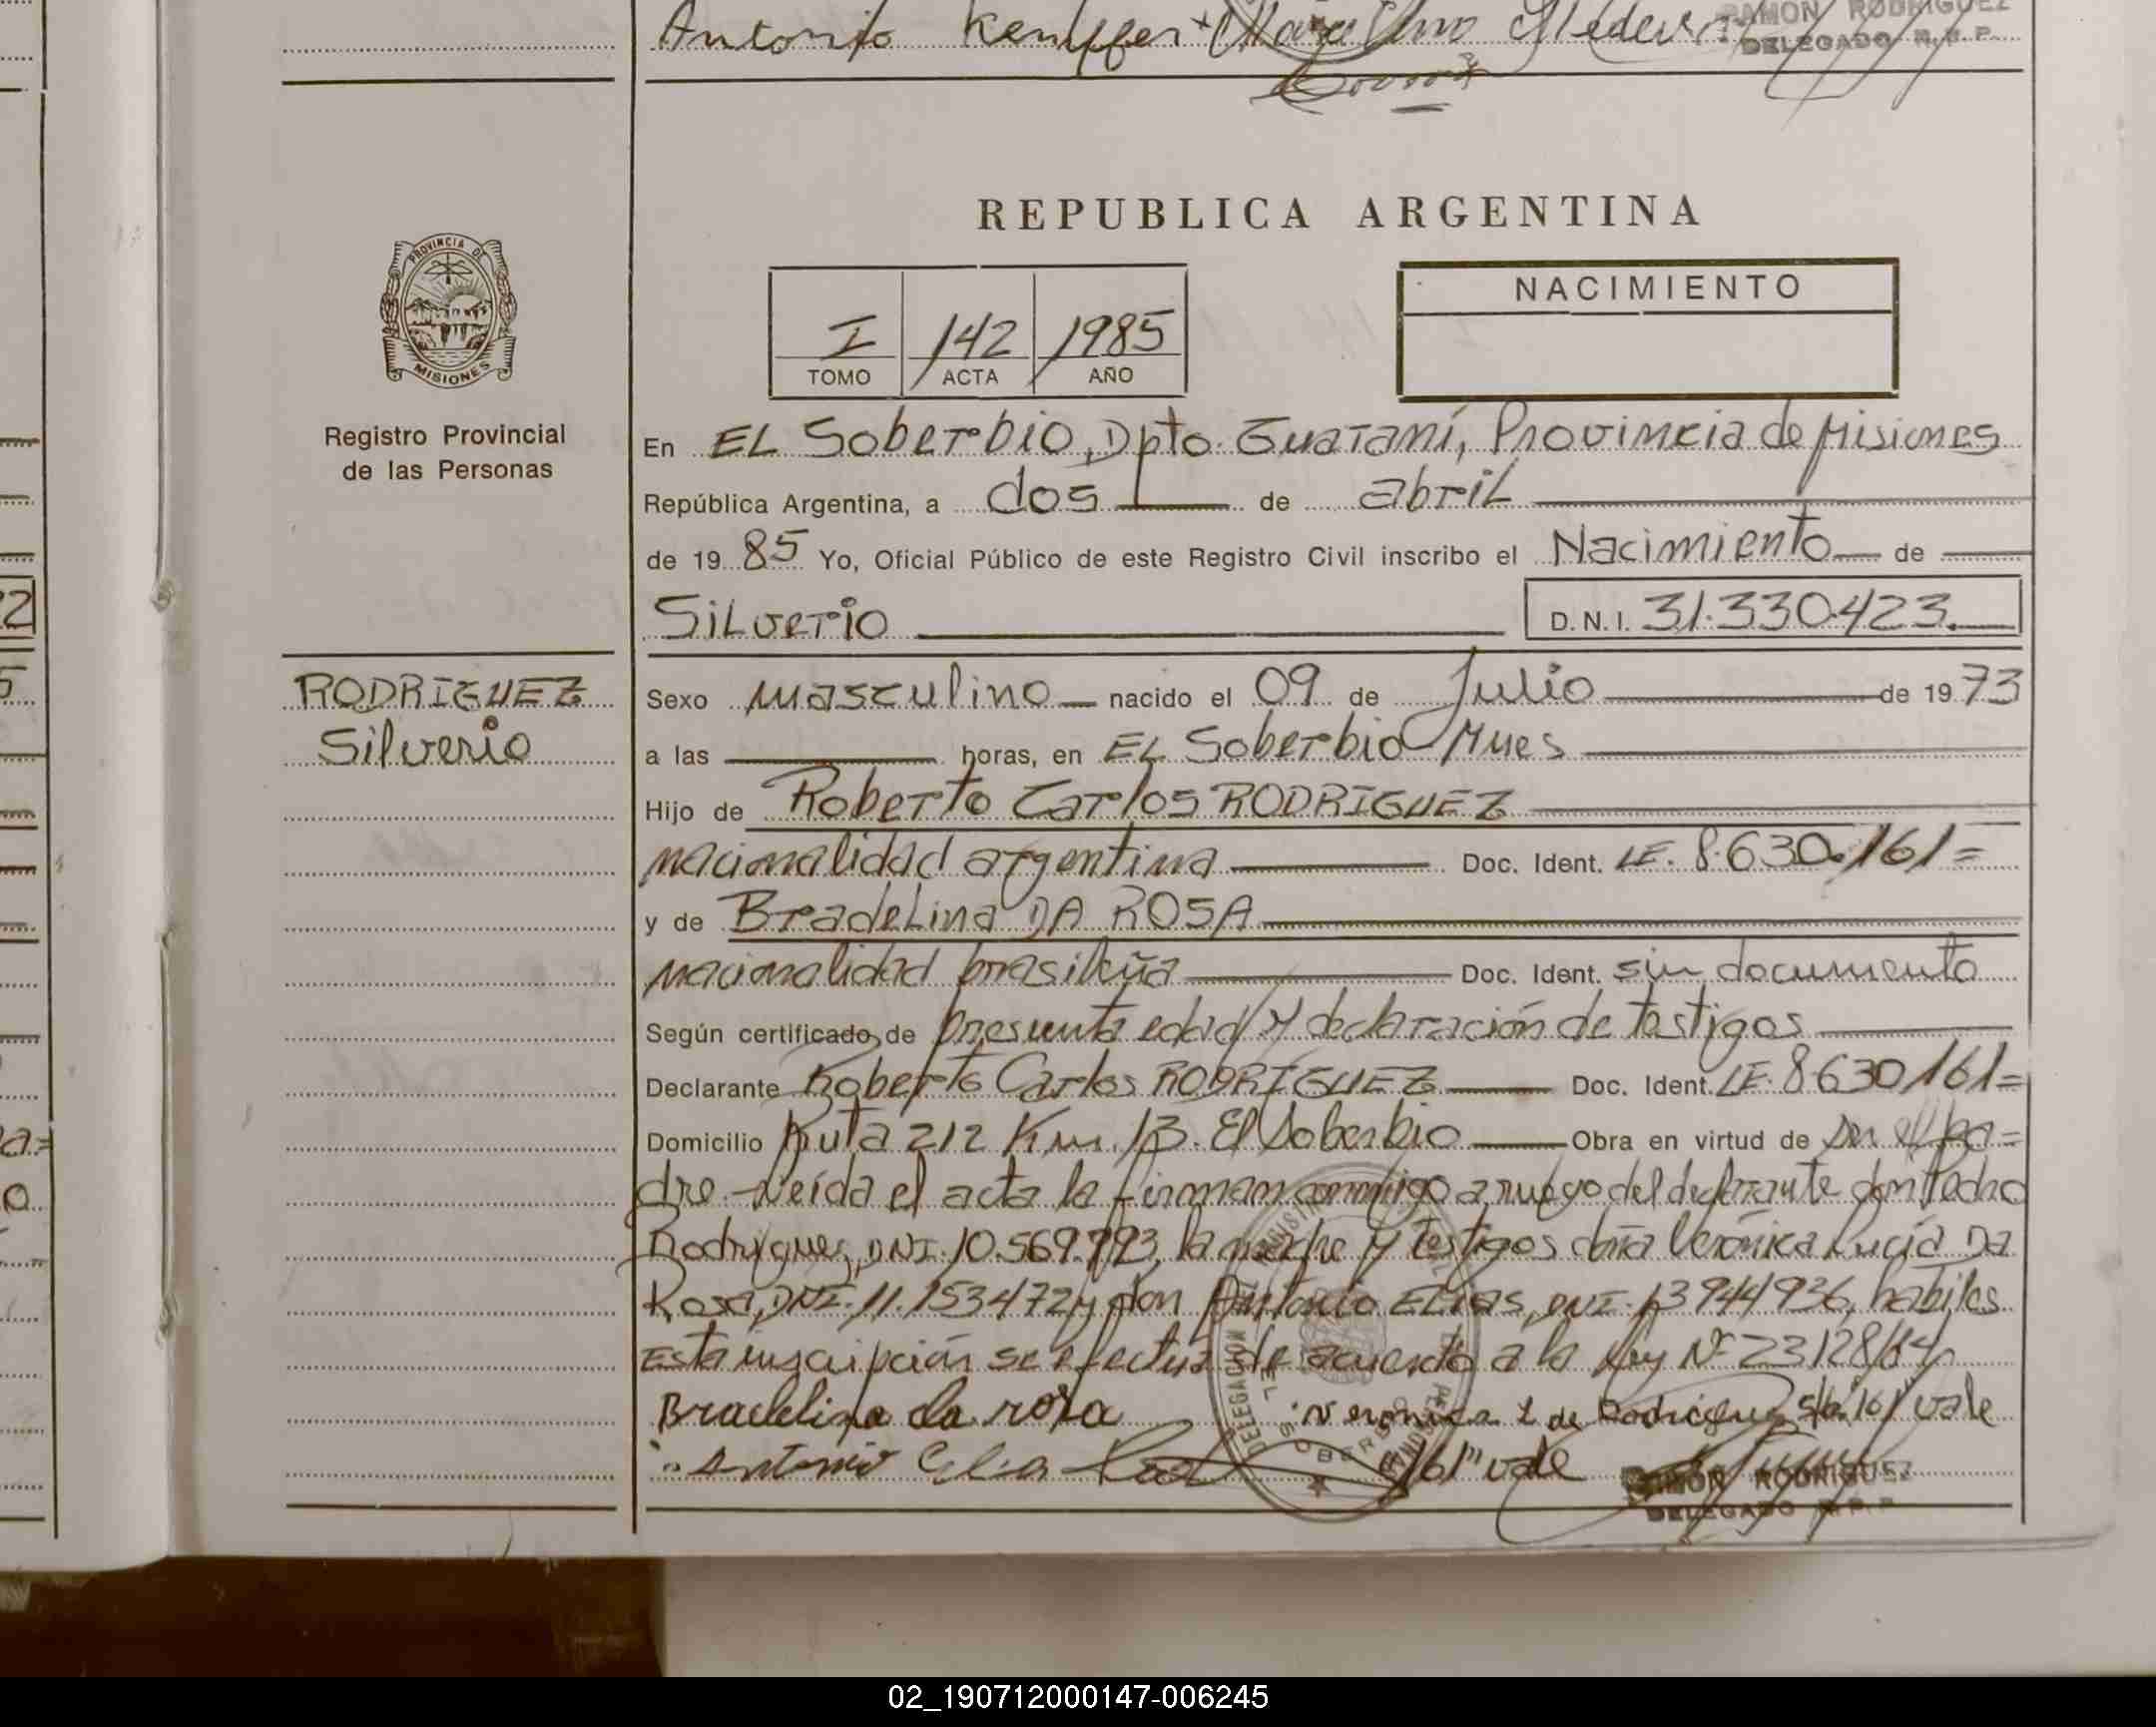 Antonio Kempfer Marcelino Medeir
RAMON RODRIGUEZ
DELEGADO R.P.P.
REPUBLICA ARGENTINA
PROVINCIA DE
MISIONES
Registro Provincial
de las Personas
I 142 1985
TOMO ACTA AÑO
NACIMIENTO
En EL SoberbiO, Dpto. Guaraní, Provincia de Misiones
República Argentina, a dos de abril
de 19 85 Yo, Oficial Público de este Registro Civil inscribo el Nacimiento de
SiLverio D.N.I. 31.330.423
RODRIGUEZ
Silverio
Sexo masculino nacido el 09 de Julio de 19 73
a las horas, en EL Soberbio Mnes
Hijo de Roberto Carlos RODRIGUEZ
nacionalidad argentina Doc. Ident. LE. 8.630.161=
y de BradeLina DA ROSA
nacionalidad brasileña Doc. Ident. sin documento
Según certificado de presunta edad y declaración de testigos
Declarante Roberto Carlos RODRIGUEZ Doc. Ident. LE. 8630161=
Domicilio Ruta 212 Km. 13. El Soberbio Obra en virtud de ser el pa=
dre.-Leída el acta la firman conmigo a ruego del declarante don Pedro
Rodriguez, DNI. 10.569.793, la madre y testigos doña Verónica Lucía Da
Rosa, DNI. 11.153472 y don Antonio ELias, DNI. 13944936, habiles
Esta inscripción se efectua de acuerdo a la Ley Nº 23128/84
Bradelina da rosa Veronica L de Rodriguez s/b. 161 vale
Antonio Elia 161" vale
RAMON RODRIGUEZ
DELEGADO R.P.P.
02_190712000147-006245